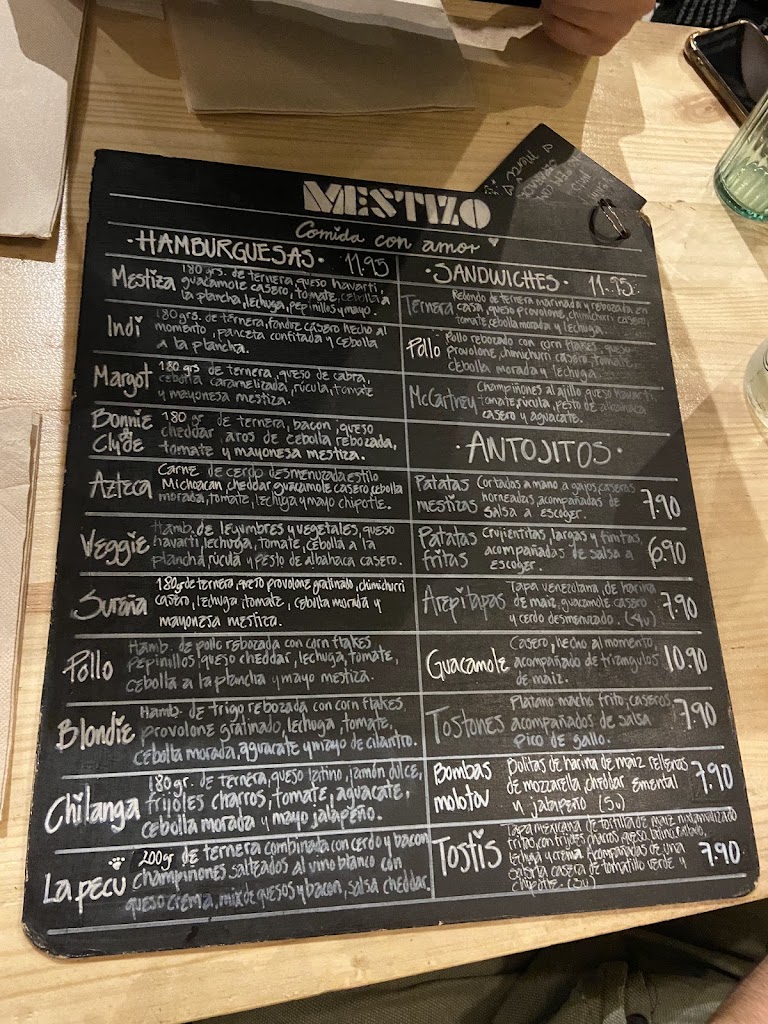 MESTIZO
Comida con amor
·HAMBURGUESAS· 11.95
Mestiza
180 grs. de ternera, queso havarti,
guacamole casero, tomate, cebolla a
la plancha, lechuga, pepinillos y mayo.
Indi
180 grs. de ternera, fondre casero hecho al
momento, panceta confitada y cebolla
a la plancha.
Margot
180 grs de ternera, queso de cabra,
cebolla caramelizada, rúcula, tomate
y mayonesa mestiza.
Bonnie
&
Clyde
180 gr de ternera, bacon, queso
cheddar, aros de cebolla rebozada,
tomate y mayonesa mestiza.
Azteca
Carne de cerdo desmenuzada estilo
Michoacan, cheddar, guacamole casero, cebolla
morada, tomate, lechuga y mayo chipotle.
Veggie
Hamb. de legumbres y vegetales, queso
havarti, lechuga, tomate, cebolla a la
plancha, rúcula y pesto de albahaca casero.
Sureña
180 gr de ternera, queso provolone gratinado, chimichurri
casero, lechuga, tomate, cebolla morada y
mayonesa mestiza.
Pollo
Hamb. de pollo rebozada con corn flakes,
pepinillos, queso cheddar, lechuga, tomate,
cebolla a la plancha y mayo mestiza.
Blondie
Hamb. de trigo rebozada con corn flakes,
provolone gratinado, lechuga, tomate,
cebolla morada, aguacate y mayo de cilantro.
Chilanga
180 gr. de ternera, queso latino, jamón dulce,
frijoles charros, tomate, aguacate,
cebolla morada y mayo jalapeño.
La pecu
200 gr de ternera combinada con cerdo y bacon,
champiñones salteados al vino blanco con
queso crema, mix de quesos y bacon, salsa cheddar.
·SANDWICHES· 11.95
Ternera
Redondo de ternera marinada y rebozada en
casa, queso provolone, chimichurri casero,
tomate, cebolla morada y lechuga.
Pollo
Pollo rebozado con corn flakes, queso
provolone, chimichurri casero, tomate,
cebolla morada y lechuga.
McCartney
Champiñones al ajillo, queso havarti,
tomate, rúcula, pesto de albahaca
casero y aguacate.
·ANTOJITOS·
Patatas
mestizas
Cortados a mano a gajos, caseras
horneadas, acompañadas de
salsa a escoger.
7.90
Patatas
fritas
Crujientitas, largas y finitas,
acompañadas de salsa a
escoger.
6.90
Arepitapas
Tapa venezolana, de harina
de maiz, guacamole casero
y cerdo desmenuzado. (4u)
7.90
Guacamole
Casero, hecho al momento,
acompañado de triangulos
de maiz.
10.90
Tostones
Platano macho frito, caseros,
acompañados de salsa
pico de gallo.
7.90
Bombas
molotov
Bolitas de harina de maiz rellenas
de mozzarella, cheddar, emental
y jalapeño (5u)
7.90
Tostis
Tapa mexicana de tortilla de maiz nixtamalizado
fritas con frijoles charros, queso latino rallado,
lechuga y crema. Acompañadas de una
salsita casera de tomatillo verde y
chipotle. (3u)
7.90